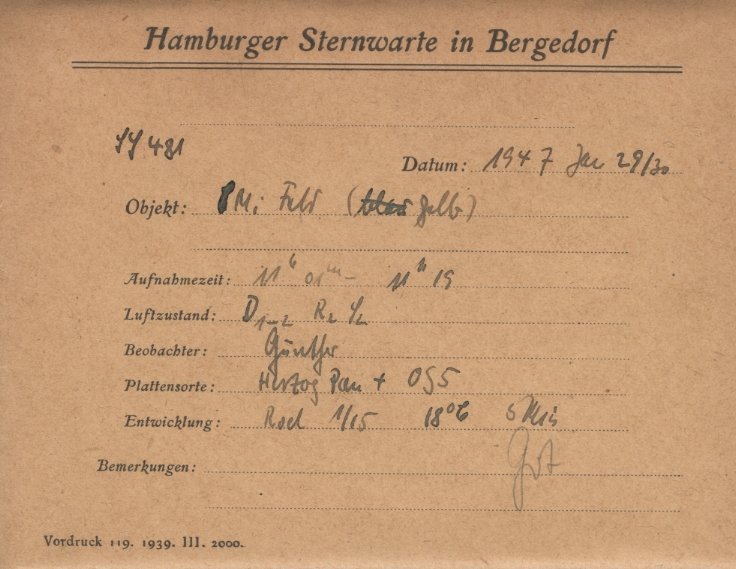 Hamburger Sternwarte in Bergedorf
481
Datum: 1947 Jan 29/30
Objekt: Mi Feld (blau gelb)
Aufnahmezeit: 11h 01m – 11h 19
Luftzustand: D1–2 R2
Beobachter: Günther
Plattensorte: Herzog Pan + OG5
Entwicklung: Rod 1/15 18°C 5 Min
Gut
Bemerkungen:
Vordruck 119. 1939. III. 2000.